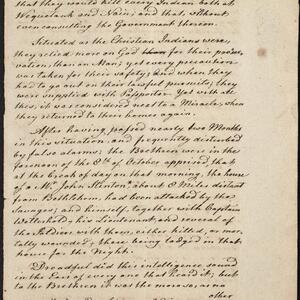 that they would kill every Indian both at
Wequetank and Nain; and that without
even consulting the Government thereon.
Situated as the Christian Indians were,
they relied more on God than for their preser-
vation, than on Man; yet every precaution
was taken for their safety; and when they
had to go out on their lawful pursuits; they
were supplied with Passports. Yet with all
this, it was considered next to a Miracle, when
they returned to their homes again.
After having passed nearly two Months
in this situation, and frequently disturbed
by false alarms; the Brethren were in the
forenoon of the 8th of October apprised, that
at the break of day on that morning, the house
of a Mr. John Stenton, about 8 Miles distant
from Bethlehem, had been attacked by the
Savages; and himself, together with Captain
Wetterhold, his Lieutenant, and several of
the Soldiers with them, either killed, or mor-
tally wounded; these being lodged in that
house for the Night.
Dreadful did this intelligence sound
in the Ears of every one that heard it; but
to the Brethren it was the more so, as no
other